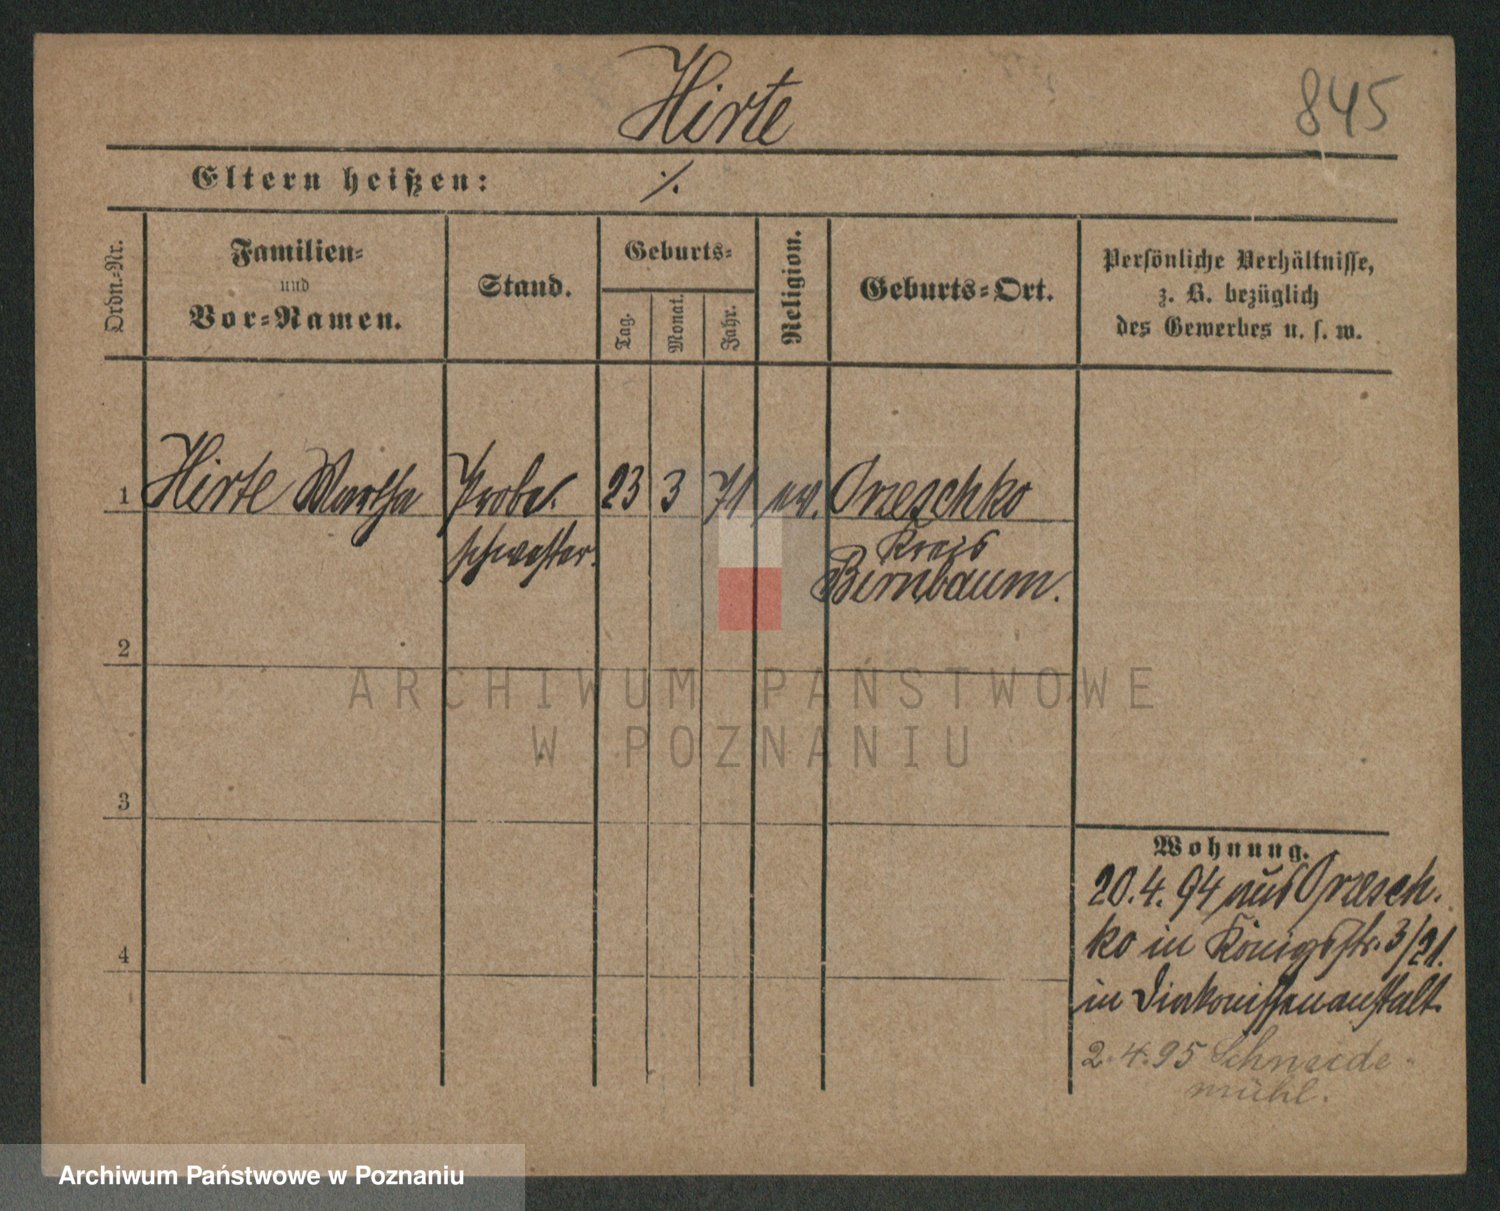 Hirte
845
Eltern heißen: ·/.
Ordn.-Nr.
Familien-
und
Vor-Namen.
Stand.
Geburts-
Tag.
Monat.
Jahr.
Religion.
Geburts-Ort.
Persönliche Verhältnisse,
z. B. bezüglich
des Gewerbes u. s. w.
1 Hirte Martha Probe- 23 3 71 ev. Orzeschko
schwester. Kreis
Birnbaum.
2
3
4
Wohnung.
20.4.94 aus Orzesch-
ko in Königsstr. 3/21.
in Diakonissenanstalt.
2.4.95 Schneide-
mühl.
ARCHIWUM PAŃSTWOWE
W POZNANIU
Archiwum Państwowe w Poznaniu